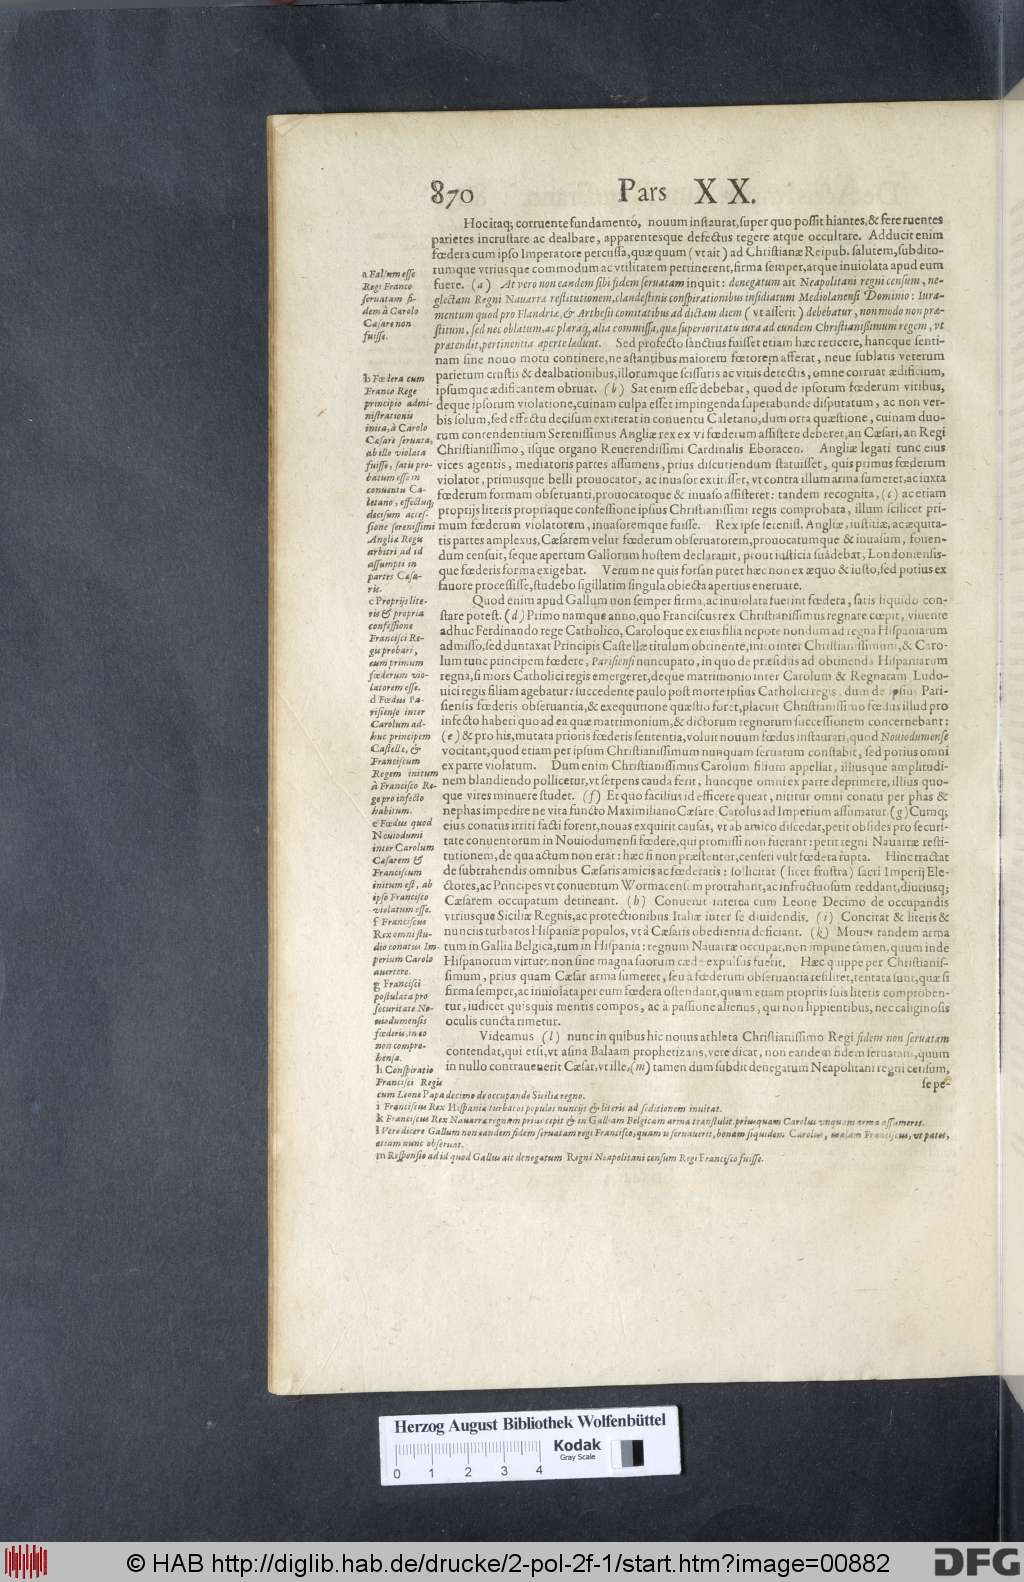 870 Pars XX.
Hoc itaq; corruente fundamento, nouum instaurat, super quo possit hiantes, & fere ruentes
parietes incrustare ac dealbare, apparentesque defectus tegere atque occultare. Adducit enim
fœdera cum ipso Imperatore percussa, quæ quum (vt ait) ad Christianæ Reipub. salutem, subdito-
rumque vtriusque commodum ac vtilitatem pertinerent, firma semper, atque inuiolata apud eum
fuere. (a) At vero non eandem sibi fidem seruatam inquit: denegatum ait Neapolitani regni censum, ne-
glectam Regni Nauarræ restitutionem, clandestinis conspirationibus insidiatum Mediolanensi Dominio: Iura-
mentum quod pro Flandriæ, & Arthesii comitatibus ad dictam diem (vt asserit) debebatur, non modo non præ-
stitum, sed nec oblatum, ac pleraq; alia commissa, quæ superioritatis iura ad eundem Christianissimum regem, vt
prætendit, pertinentia aperte lædunt. Sed profecto sanctius fuisset etiam hæc reticere, hancque senti-
nam sine nouo motu continere, ne astantibus maiorem fœtorem afferat, neue sublatis veterum
parietum crustis & dealbationibus, illorumque scissuris ac vitiis detectis, omne corruat ædificium,
ipsumque ædificantem obruat. (b) Sat enim esse debebat, quod de ipsorum fœderum viribus,
deque ipsorum violatione, cuinam culpa esset impingenda superabunde disputatum, ac non ver-
bis solum, sed effectu decisum extiterat in conuentu Caletano, dum orta quæstione, cuinam duo-
rum contendentium Serenissimus Angliæ rex ex vi fœderum assistere deberet, an Cæsari, an Regi
Christianissimo, ipsque organo Reuerendissimi Cardinalis Eboracen. Angliæ legati tunc eius
vices agentis, mediatoris partes assumens, prius discutiendum statuisset, quis primus fœderum
violator, primusque belli prouocator, ac inuasor extitisset, vt contra illum arma sumeret, ac iuxta
fœderum formam obseruanti, prouocatoque & inuaso assisteret: tandem recognita, (c) ac etiam
proprijs literis propriaque confessione ipsius Christianissimi regis comprobata, illum scilicet pri-
mum fœderum violatorem, inuasoremque fuisse. Rex ipse sereniss. Angliæ, iustitiæ, ac æquita-
tis partes amplexus, Cæsarem velut fœderum obseruatorem, prouocatumque & inuasum, fouen-
dum censuit, seque apertum Gallorum hostem declarauit, prout iusticia suadebat, Londoniensis-
que fœderis forma exigebat. Verum ne quis forsan putet hæc non ex æquo & iusto, sed potius ex
fauore processisse, studebo sigillatim singula obiecta apertius eneruare.
Quod enim apud Gallum non semper firma, ac inuiolata fuerint fœdera, satis liquido con-
stare potest. (d) Primo namque anno, quo Franciscus rex Christianissimus regnare cœpit, viuente
adhuc Ferdinando rege Catholico, Caroloque ex eius filia nepote nondum ad regna Hispaniarum
admisso, sed duntaxat Principis Castellæ titulum obtinente, inito inter Christianissimum, & Caro-
lum tunc principem fœdere, Parisiensi nuncupato, in quo de præsidiis ad obtinenda Hispaniarum
regna, si mors Catholici regis emergeret, deque matrimonio inter Carolum & Regnatam Ludo-
uici regis filiam agebatur: succedente paulo post morte ipsius Catholici regis, dum de ipsius Pari-
siensis fœderis obseruantia, & exequutione quæstio foret, placuit Christianissimo fœdus illud pro
infecto haberi quo ad ea quæ matrimonium, & dictorum regnorum successionem concernebant:
(e) & pro his, mutata prioris fœderis sententia, voluit nouum fœdus instaurari, quod Nouiodumense
vocitant, quod etiam per ipsum Christianissimum nunquam seruatum constabit, sed potius omni
ex parte violatum. Dum enim Christianissimus Carolum filium appellat, illiusque amplitudi-
nem blandiendo pollicetur, vt serpens cauda ferit, huncque omni ex parte deprimere, illius quo-
que vires minuere studet. (f) Et quo facilius id efficere queat, nititur omni conatu per phas &
nephas impedire ne vita functo Maximiliano Cæsare, Carolus ad Imperium assumatur. (g) Cumq;
eius conatus irriti facti forent, nouas exquirit causas, vt ab amico discedat, petit obsides pro securi-
tate conuentorum in Nouiodumensi fœdere, qui promissi non fuerant: petit regni Nauarræ resti-
tutionem, de qua actum non erat: hæc si non præstentur, censeri vult fœdera rupta. Hinc tractat
de subtrahendis omnibus Cæsaris amicis ac fœderatis: sollicitat (licet frustra) sacri Imperij Ele-
ctores, ac Principes vt conuentum Wormacensem protrahant, ac infructuosum reddant, diutiusq;
Cæsarem occupatum detineant. (h) Conuenit interea cum Leone Decimo de occupandis
vtriusque Siciliæ Regnis, ac protectionibus Italiæ inter se diuidendis. (i) Concitat & literis &
nunciis turbatos Hispaniæ populos, vt à Cæsaris obedientia deficiant. (k) Mouet tandem arma
tum in Gallia Belgica, tum in Hispania: regnum Nauarræ occupat, non impune tamen, quum inde
Hispanorum virtute non sine magna suorum cæde expulsus fuerit. Hæc quippe per Christianis-
simum, prius quam Cæsar arma sumeret, seu à fœderum obseruantia resiliret, tentata sunt, quæ si
firma semper, ac inuiolata per eum fœdera ostendant, quum etiam propriis suis literis comproben-
tur, iudicet quisquis mentis compos, ac à passione alienus, qui non lippientibus, nec caliginosis
oculis cuncta rimetur.
Videamus (l) nunc in quibus hic nouus athleta Christianissimo Regi fidem non seruatam
contendat, qui etsi, vt asina Balaam prophetizans, vere dicat, non eandem fidem seruatam, quum
in nullo contrauenerit Cæsar, vt ille, (m) tamen dum subdit denegatum Neapolitani regni censum,
se pe-
a Falsum esse
Regi Franco
seruatam fi-
dem à Carolo
Cæsare non
fuisse.
b Fœdera cum
Franco Rege
principio admi-
nistrationis
inita, à Carolo
Cæsare seruata,
ab illo violata
fuisse, satis pro-
batum esse in
conuentu Ca-
letano, effectuq;
decisum acces-
sione serenissimi
Angliæ Regis
arbitri ad id
assumpti in
partes Cæsa-
ris.
c Proprijs lite-
ris & propria
confessione
Francisci Re-
gis probari,
eum primum
fœderum vio-
latorem esse.
d Fœdus Pa-
risiense inter
Carolum ad-
huc principem
Castellæ, &
Franciscum
Regem initum
à Francisco Re-
ge pro infecto
habitum.
e Fœdus quod
Nouiodumi
inter Carolum
Cæsarem &
Franciscum
initum est, ab
ipso Francisco
violatum esse.
f Franciscus
Rex omni stu-
dio conatus Im-
perium Carolo
auertere.
g Francisci
postulata pro
securitate No-
uiodumensis
fœderis, in eo
non compre-
hensa.
h Conspiratio
Francisci Regis
cum Leone Papa decimo de occupando Siciliæ regno.
i Franciscus Rex Hispaniæ turbatos populos nuncijs & literis ad seditionem inuitat.
k Franciscus Rex Nauarræ regnum prius cepit & in Galliam Belgicam arma transtulit, priusquam Carolus vnquam arma assumeret.
l Vere dicere Gallum non eandem fidem seruatam regi Francisco, quam is seruauerit, bonam siquidem Carolus, malam Franciscus, vt patet,
etiam nunc obseruat.
m Responsio ad id quod Gallus ait denegatum Regni Neapolitani censum Regi Francisco fuisse.
Herzog August Bibliothek Wolfenbüttel
Kodak
Gray Scale
0 1 2 3 4
© HAB http://diglib.hab.de/drucke/2-pol-2f-1/start.htm?image=00882
DFG